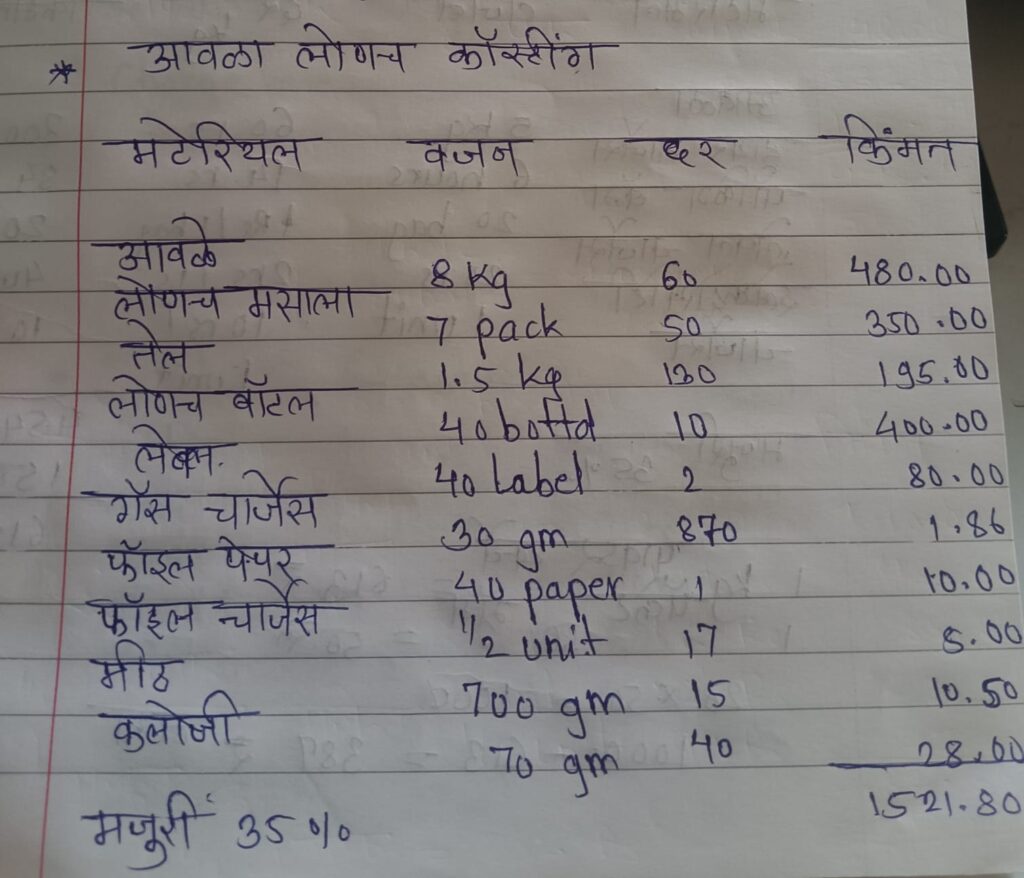 * आवळा लोणच कॉस्टींग
मटेरियल वजन दर किंमत
आवळे 8 kg 60 480.00
लोणच मसाला 7 pack 50 350.00
तेल 1.5 kg 130 195.00
लोणच बॉटल 40 bottel 10 400.00
लेबल. 40 Label 2 80.00
गॅस चार्जेस 30 gm 870 1.86
फॉइल पेपर 40 paper 1 10.00
फॉइल चार्जेस 1/2 unit 17 8.00
मीठ 700 gm 15 10.50
कलोजी 70 gm 40 28.00
1521.80
मजुरी 35%